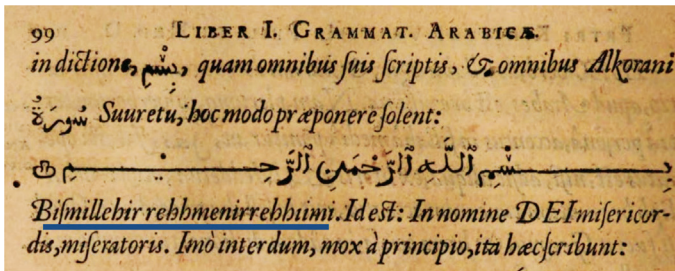 99 LIBER I. GRAMMAT. ARABICÆ.
in dictione, بِسْمِ, quam omnibus suis scriptis, & omnibus Alkorani
سُورَةُ Suuretu, hoc modo præponere solent:
بِسْمِ ٱللَّهِ ٱلرَّحْمَنِ ٱلرَّحِيمِ
Bismillehir rehhmenirrehhiimi. Id est: In nomine DEI misericor-
dis, miseratoris. Imò interdum, mox à principio, ita hæc scribunt: